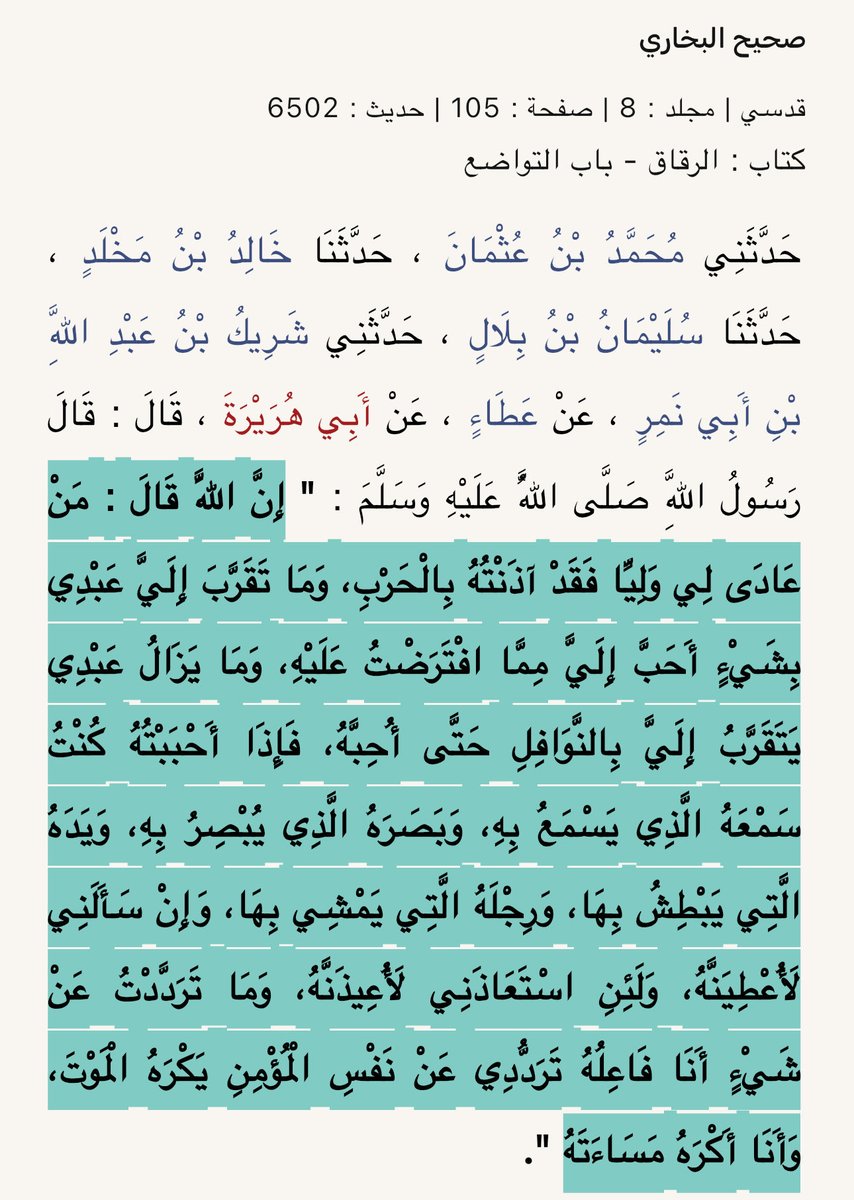 صحيح البخاري
قدسي | مجلد : 8 | صفحة : 105 | حديث : 6502
كتاب : الرقاق - باب التواضع
حَدَّثَنِي مُحَمَّدُ بْنُ عُثْمَانَ ، حَدَّثَنَا خَالِدُ بْنُ مَخْلَدٍ ،
حَدَّثَنَا سُلَيْمَانُ بْنُ بِلَالٍ ، حَدَّثَنِي شَرِيكُ بْنُ عَبْدِ اللَّهِ
بْنِ أَبِي نَمِرٍ ، عَنْ عَطَاءٍ ، عَنْ أَبِي هُرَيْرَةَ ، قَالَ : قَالَ
رَسُولُ اللَّهِ صَلَّى اللَّهُ عَلَيْهِ وَسَلَّمَ : " إِنَّ اللَّهَ قَالَ : مَنْ
عَادَى لِي وَلِيًّا فَقَدْ آذَنْتُهُ بِالْحَرْبِ، وَمَا تَقَرَّبَ إِلَيَّ عَبْدِي
بِشَيْءٍ أَحَبَّ إِلَيَّ مِمَّا افْتَرَضْتُ عَلَيْهِ، وَمَا يَزَالُ عَبْدِي
يَتَقَرَّبُ إِلَيَّ بِالنَّوَافِلِ حَتَّى أُحِبَّهُ، فَإِذَا أَحْبَبْتُهُ كُنْتُ
سَمْعَهُ الَّذِي يَسْمَعُ بِهِ، وَبَصَرَهُ الَّذِي يُبْصِرُ بِهِ، وَيَدَهُ
الَّتِي يَبْطِشُ بِهَا، وَرِجْلَهُ الَّتِي يَمْشِي بِهَا، وَإِنْ سَأَلَنِي
لَأُعْطِيَنَّهُ، وَلَئِنِ اسْتَعَاذَنِي لَأُعِيذَنَّهُ، وَمَا تَرَدَّدْتُ عَنْ
شَيْءٍ أَنَا فَاعِلُهُ تَرَدُّدِي عَنْ نَفْسِ الْمُؤْمِنِ يَكْرَهُ الْمَوْتَ،
وَأَنَا أَكْرَهُ مَسَاءَتَهُ ".